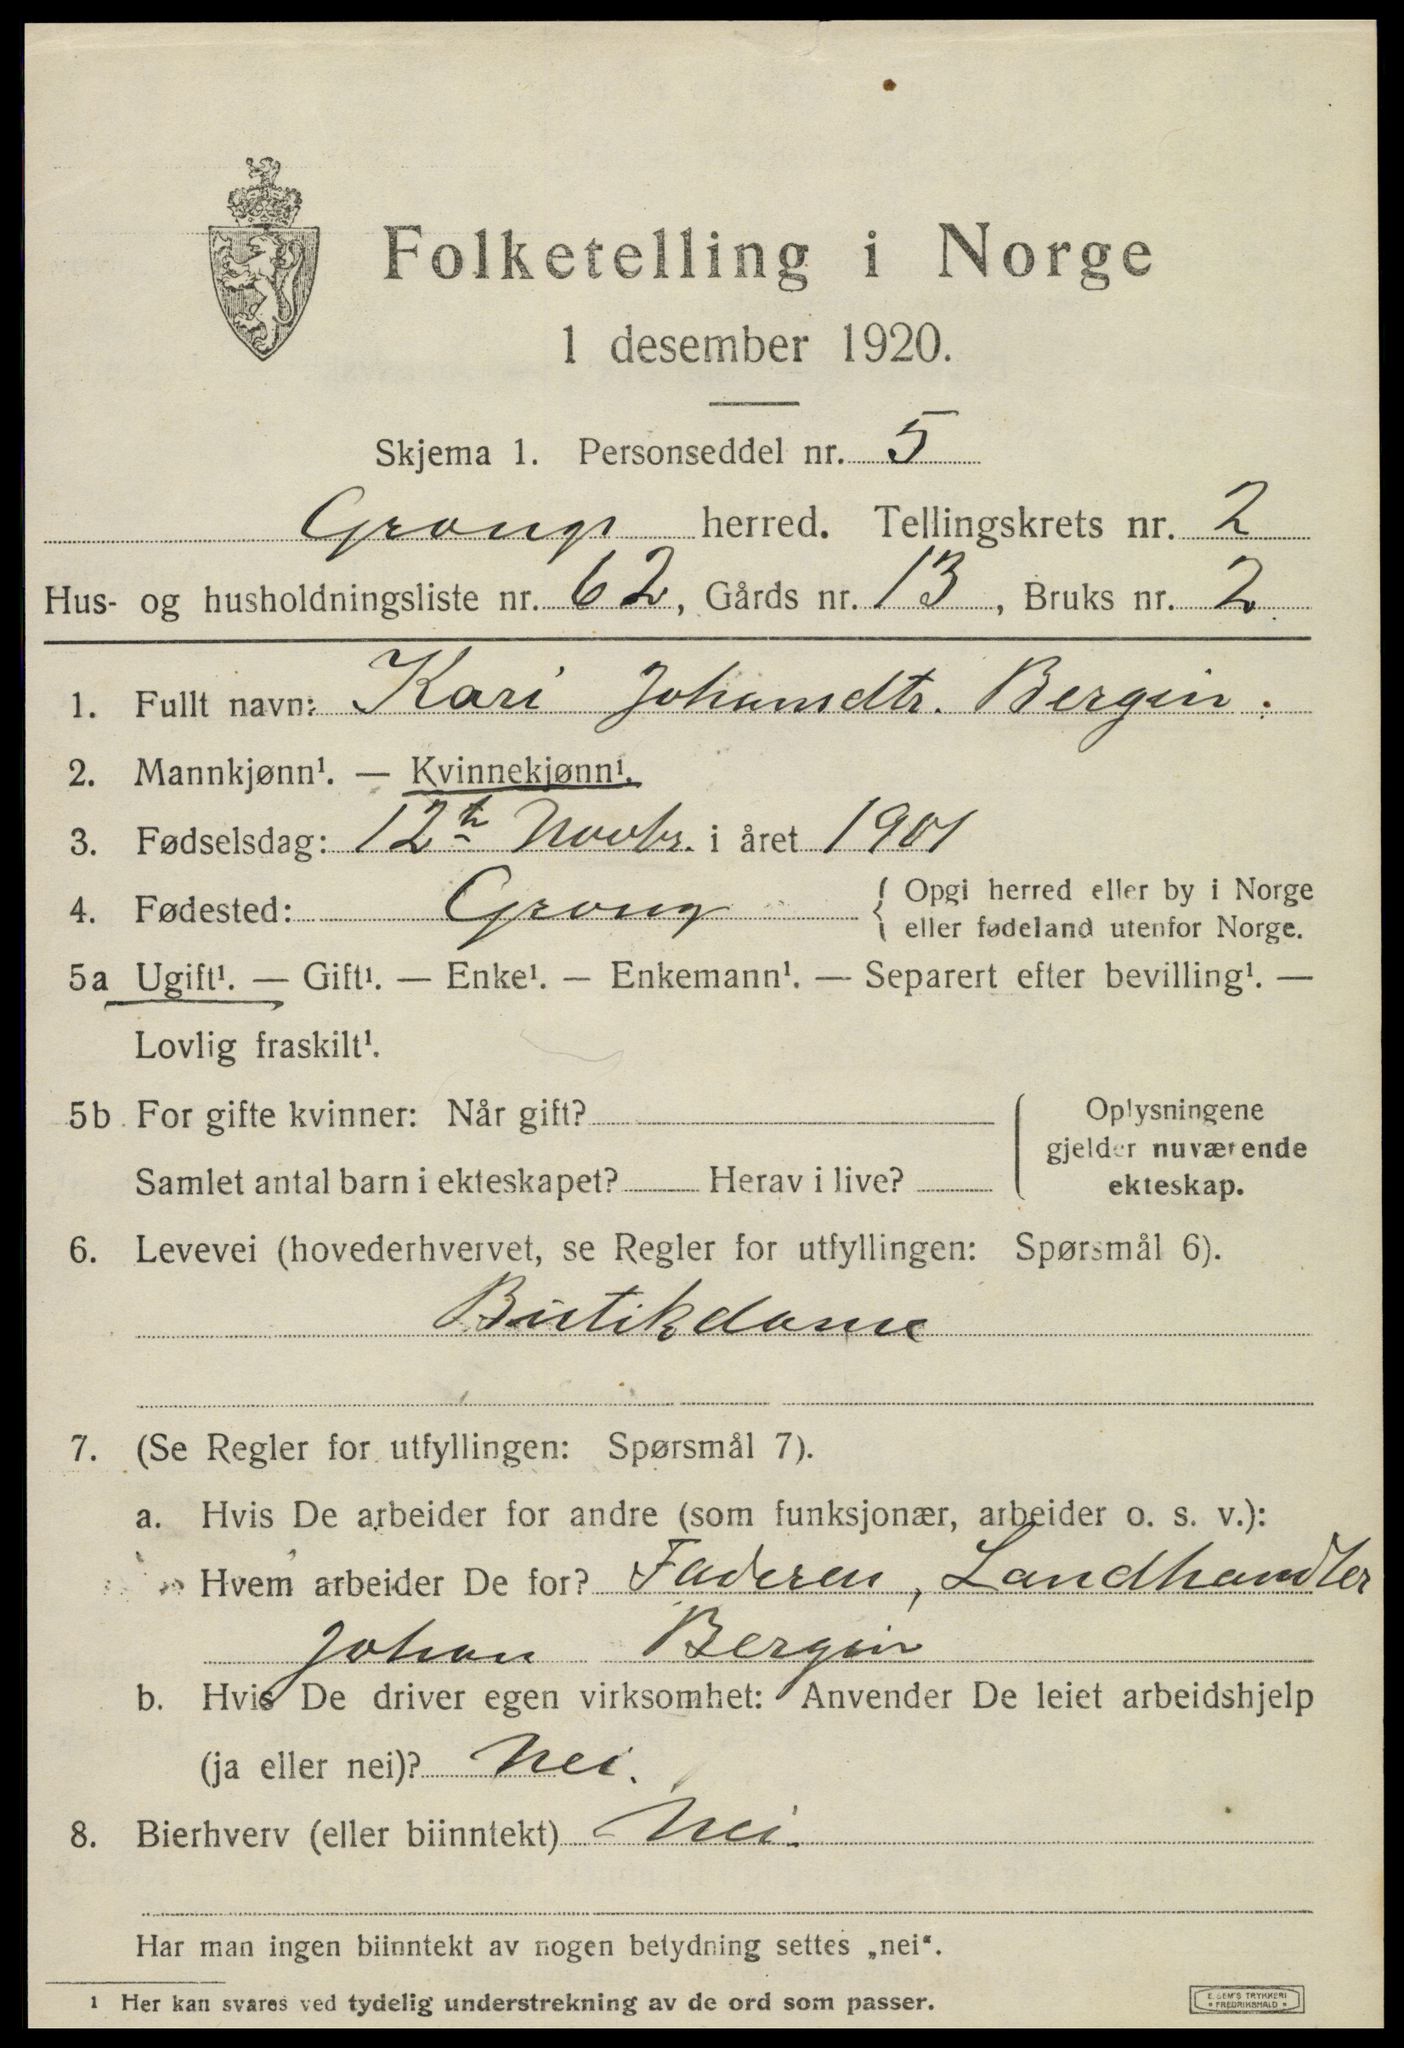 Folketelling i Norge
1 desember 1920.
Skjema 1. Personseddel nr. 5
Grong herred. Tellingskrets nr. 2
Hus- og husholdningsliste nr. 62, Gårds nr. 13, Bruks nr. 2
1. Fullt navn: Kari Johansdtr. Bergin.
2. Mannkjønn¹. — Kvinnekjønn¹.
3. Fødselsdag: 12te Novbr. i året 1901
4. Fødested: Grong { Opgi herred eller by i Norge
eller fødeland utenfor Norge.
5a Ugift¹. — Gift¹. — Enke¹. — Enkemann¹. — Separert efter bevilling¹. —
Lovlig fraskilt¹.
5b For gifte kvinner: Når gift?
Samlet antal barn i ekteskapet? Herav i live?
Oplysningene
gjelder nuværende
ekteskap.
6. Levevei (hovederhvervet, se Regler for utfyllingen: Spørsmål 6).
Butikdame
7. (Se Regler for utfyllingen: Spørsmål 7).
a. Hvis De arbeider for andre (som funksjonær, arbeider o. s. v.):
Hvem arbeider De for? Faderen, Landhandler
Johan Bergin
b. Hvis De driver egen virksomhet: Anvender De leiet arbeidshjelp
(ja eller nei)? Nei.
8. Bierhverv (eller biinntekt) Nei.
Har man ingen biinntekt av nogen betydning settes „nei“.
1 Her kan svares ved tydelig understrekning av de ord som passer.
E. SEM'S TRYKKERI
* FREDRIKSHALD *